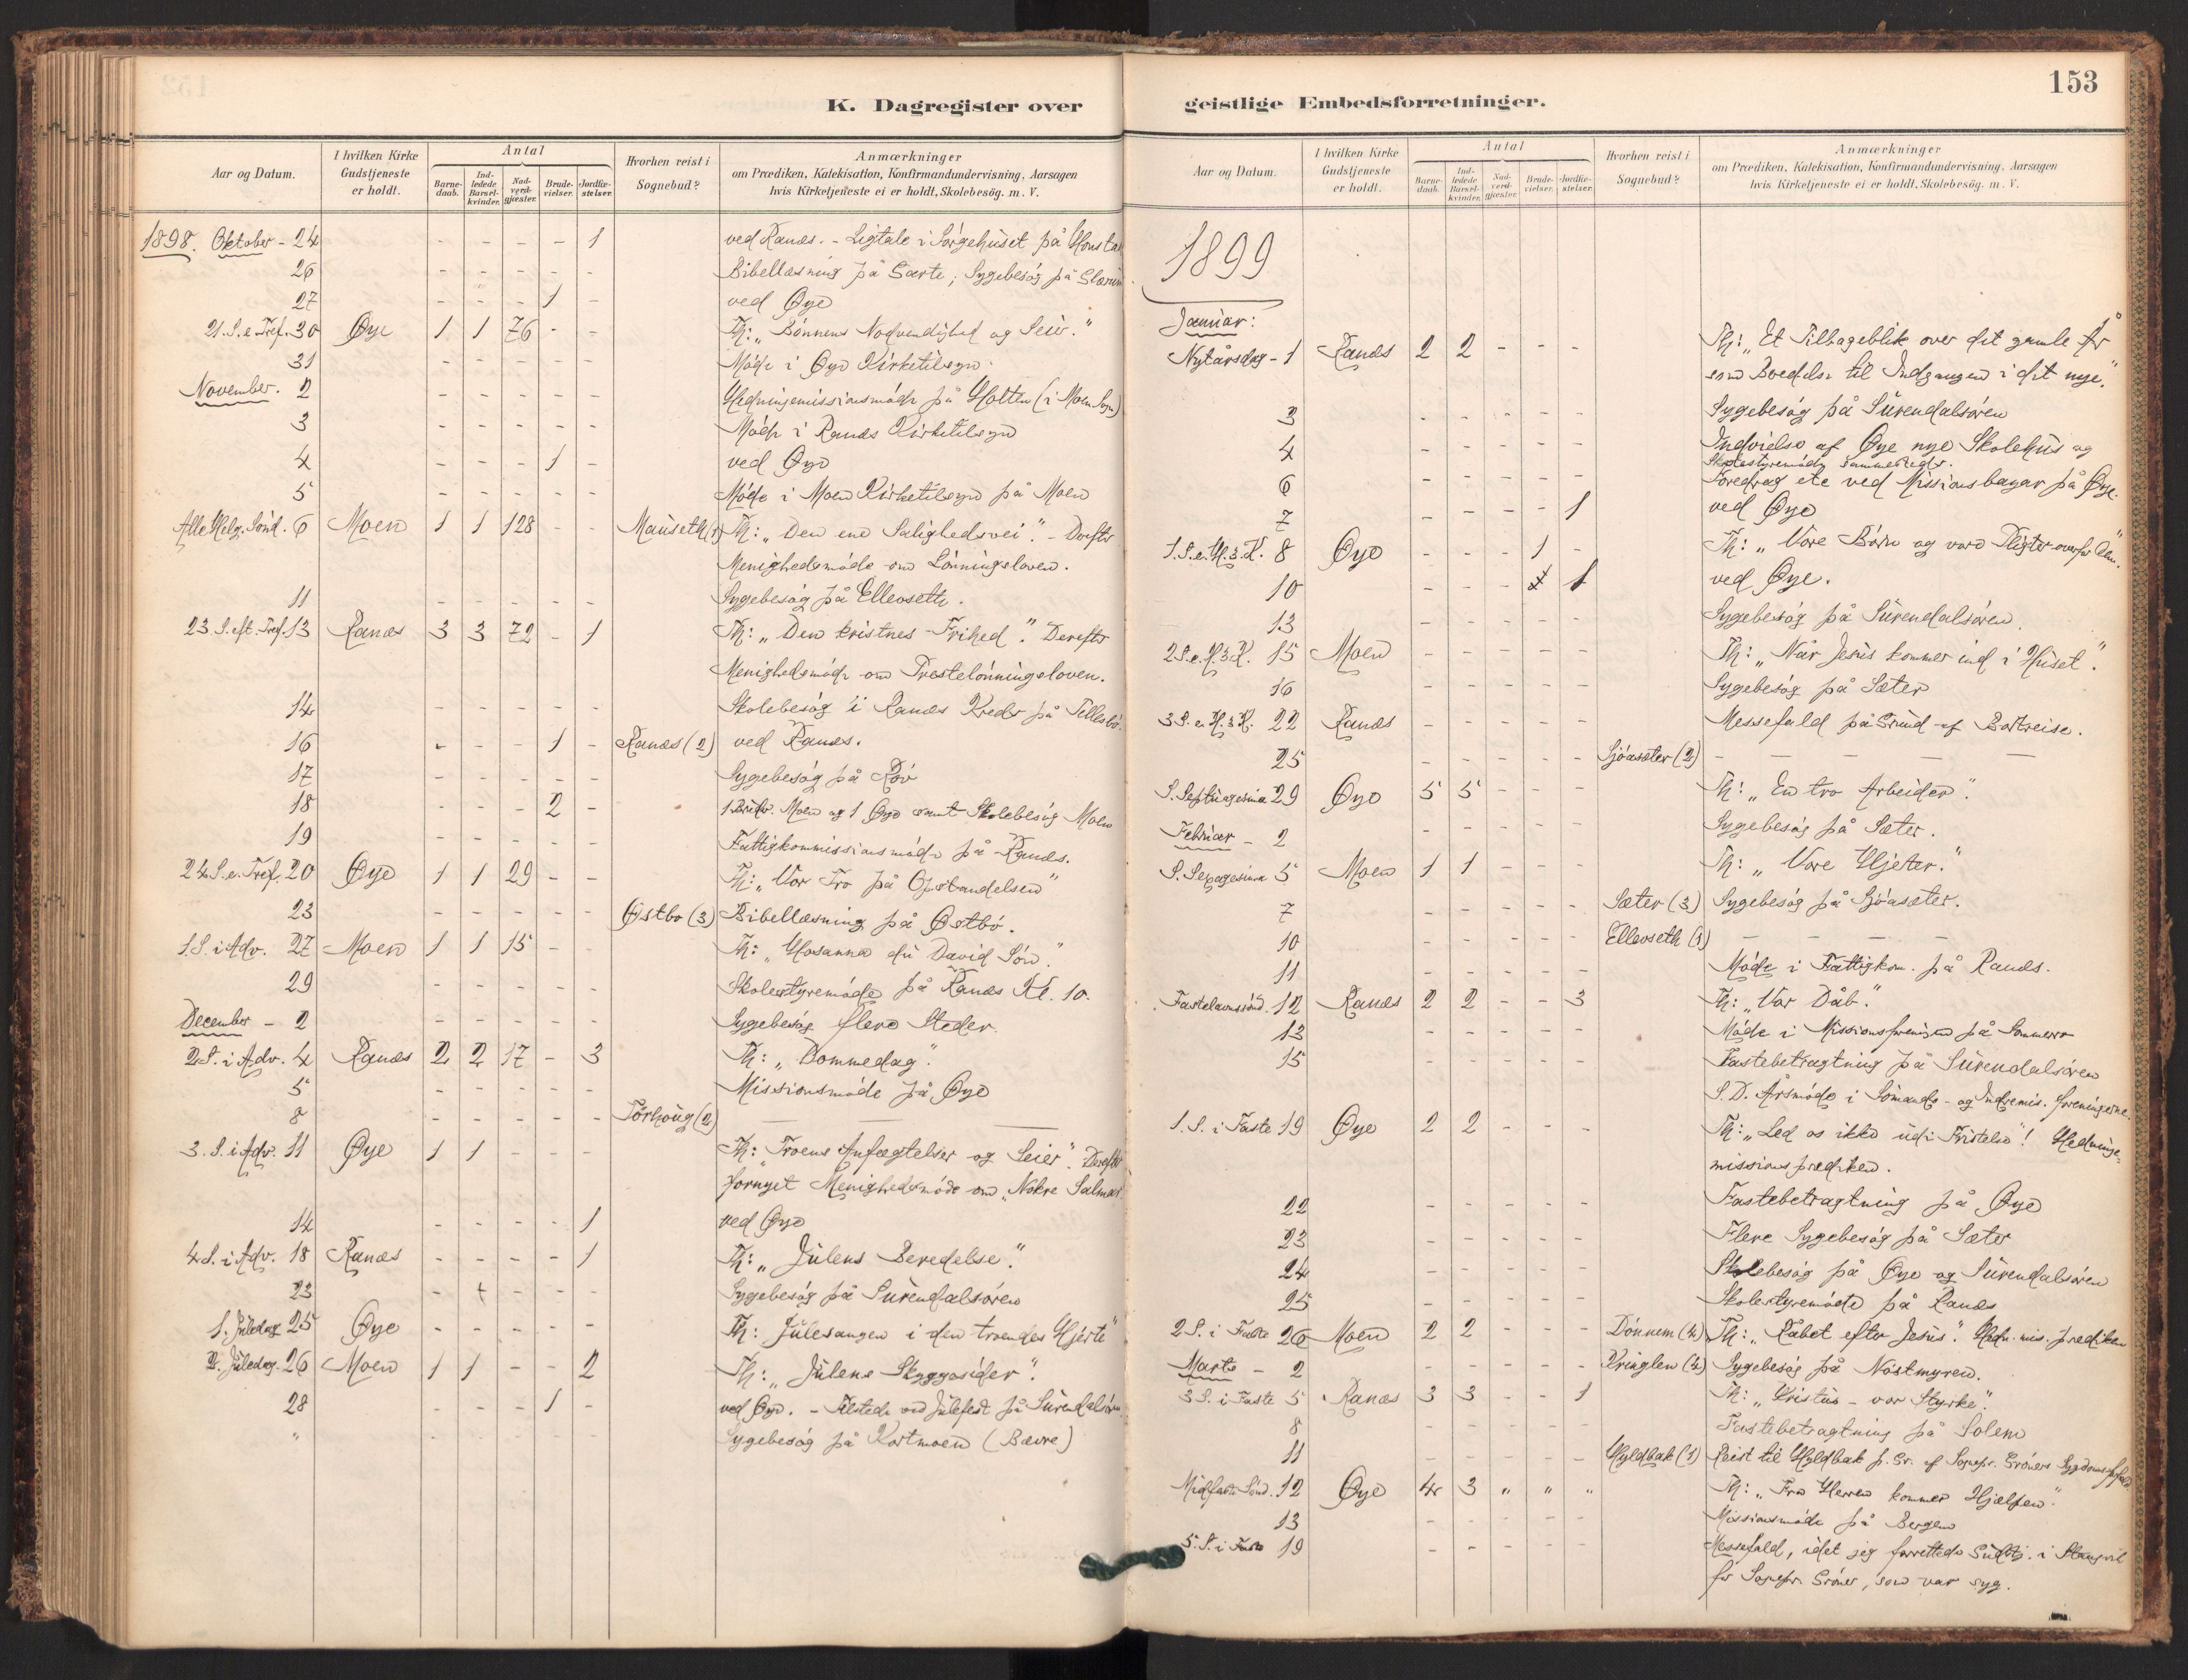 K. Dagregister over
Aar og Datum. I hvilken Kirke Gudstjeneste er holdt. Antal Barnedaab. Indledede Barselkvinder. Nadverdgjæster. Brudevielser. Jordfæstelser. Hvorhen reist i Sognebud? Anmærkninger om Prædiken, Katekisation, Konfirmandundervisning, Aarsagen hvis Kirketjeneste ei er holdt, Skolebesög. m. V.
1898. Oktober - 24 - - - - 1 ved Ranæs. - Ligtale i Sörgehuset på
26 - - - - - Bibellæsning på Særte; Sygebesög på
27 - - - 1 - ved Øye
21. S. e. Tref. 30 Øye 1 1 76 - - Th: „Bönnens Nødvendighed og Seier."
31 - - - - - Möde i Øye Kirketilsyn.
November. 2 - - - - - Hedningemissionsmöde på Holten (i Moen Sogn)
3 - - - - - Möde i Ranæs Kirketilsyn
4 - - - 1 - ved Øye
5 - - - - - Möde i Moen Kirketilsyn på Moen
Alle Helg. Sönd. 6 Moen 1 1 128 - - Mauseth (1) Th: „Den ene Salighedsvei". - Derefter
Menighedsmöde om Lönningsloven.
11 - - - - - Sygebesög på Ellevseth.
23. S. eft. Tref. 13 Ranæs 3 3 72 - 1 Th: „Den kristnes Frihed". Derefter
Menighedsmöde om Prestelönningsloven.
14 - - - - - Skolebesög i Ranæs Kreds på Tellesbö.
16 - - - 1 - Ranæs (2) ved Ranæs.
17 - - - - - Sygebesög på Röv
18 2 - 1 Moen og 1 Øye samt Skolebesög Moen
19 - - - - - Fattigkommissionsmöde på Ranæs.
24. S. e. Tref. 20 Øye 1 1 29 - - Th: „Vor Tro på Opstandelsen"
23 - - - - - Østbö (3) Bibellæsning på Østbö.
1. S. i Adv. 27 Moen 1 1 15 - - Th: „Hosanna du David Sön".
29 - - - - - Skolestyremöde på Ranæs Kl. 10.
December - 2 - - - - - Sygebesög flere Steder.
2. S. i Adv. 4 Ranæs 2 2 17 - 3 Th: „Dommedag".
5 - - - - - Missionsmöde på Øye
8 - - - - - Torhoug (2) — — —
3. S. i Adv. 11 Øye 1 1 - - - Th: „Troens Anfægtelser og Seier". Derefter
fornyet Menighedsmöde om „Nokre Salmar".
14 - - - - 1 ved Øye
4. S. i Adv. 18 Ranæs - - - - 1 Th: „Julens Beredelse".
23 - - - - - Sygebesög på Surendalsören
1. Juledag 25 Øye - - - - - Th: Julesangen i den troendes Hjerte"
2. Juledag. 26 Moen 1 1 - - 2 Th: „Julens Skyggesider".
28 - - - 1 - ved Øye. - Tilstede ved Julefest på Surendalsören
" - - - - - Sygebesög på Kortmoen (Bævre)
153
geistlige Embedsforretninger.
Aar og Datum. I hvilken Kirke Gudstjeneste er holdt. Antal Barnedaab. Indledede Barselkvinder. Nadverdgjæster. Brudevielser. Jordfæstelser. Hvorhen reist i Sognebud? Anmærkninger om Prædiken, Katekisation, Konfirmandundervisning, Aarsagen hvis Kirketjeneste ei er holdt, Skolebesög. m. V.
1899
Januar:
Nytårsdag - 1 Ranæs 2 2 - - - Th: „Et Tilbageblik over det gamle År
som Beredelse til Indgangen i det nye."
3 - - - - - Sygebesög på Surendalsören
4 - - - - - Indvielse af Øye nye Skolehus og
Skolestyremöde sammesteds.
6 - - - - - Foredrag etc ved Missionsbazar på Øye.
7 - - - - 1 ved Øye
1. S. e. H. 3 K. 8 Øye - - - 1 - Th: „Vore Börn og vore Pligter overfor dem."
10 - - - 1 ved Øye.
13 - - - - - Sygebesög på Surendalsören.
2 S. e. H. 3 K. 15 Moen - - - - - Th: „Når Jesus kommer ind i Huset".
16 - - - - - Sygebesög på Sæter
3 S. e. H. 3 K. 22 Ranæs - - - - - Messefald på Grund af Bortreise.
25 - - - - - Sjöasæter (2) — — — —
S. Septuagesima 29 Øye 5 5 - - - Th: „En tro Arbeider".
Februar - 2 - - - - - Sygebesög på Sæter.
S. Sexagesima 5 Moen 1 1 - - - Th: „Vore Hjerter."
7 - - - - - Sæter (3) Sygebesög på Sjöasæter.
10 - - - - - Ellevseth (1) — — — —
11 - - - - - Möde i Fattigkom. på Ranæs.
Fastelavnssönd. 12 Ranæs 2 2 - - 3 Th: „Vor Dåb".
13 - - - - - Möde i Missionsforeningen på Sommerro
15 - - - - - Fastebetragtning på Surendalsören
S. D. Årsmöde i Sömands- og Indremis. foreningerne.
1. S. i Faste 19 Øye 2 2 - - - Th: „Led os ikke udi Fristelse"! Hedninge-
missionsprediken.
22 - - - - - Fastebetragtning på Øye
23 - - - - - Flere Sygebesög på Sæter
24 - - - - - Skolebesög på Øye og Surendalsören
25 - - - - - Skolestyremöde på Ranæs
2 S. i Faste 26 Moen 2 2 - - - Dönnem Th: „Råbet efter Jesus". Hedn. mis. prediken
Marts - 2 - - - - - Kringlen Sygebesög på Nöstmyren.
3 S. i Faste 5 Ranæs 3 3 - - 1 Th: „Kristus - vor Styrke".
8 - - - - - Fastebetragtning på Solem
11 - - - - - Hyldbak (1) Reist til Hyldbak p. Gr. af Sognepr. Gröners Sygdomsforfald
Midfaste Sönd. 12 Øye 4 3 " " " Th: „Fra Herren kommer Hjælpen".
13 - - - - - Missionsmöde på Bergen
5. S. i Faste 19 - - - - - Messefald, idet jeg forrettede Gudstj. i Stangvik
for Sognepr. Gröner, som var syg.